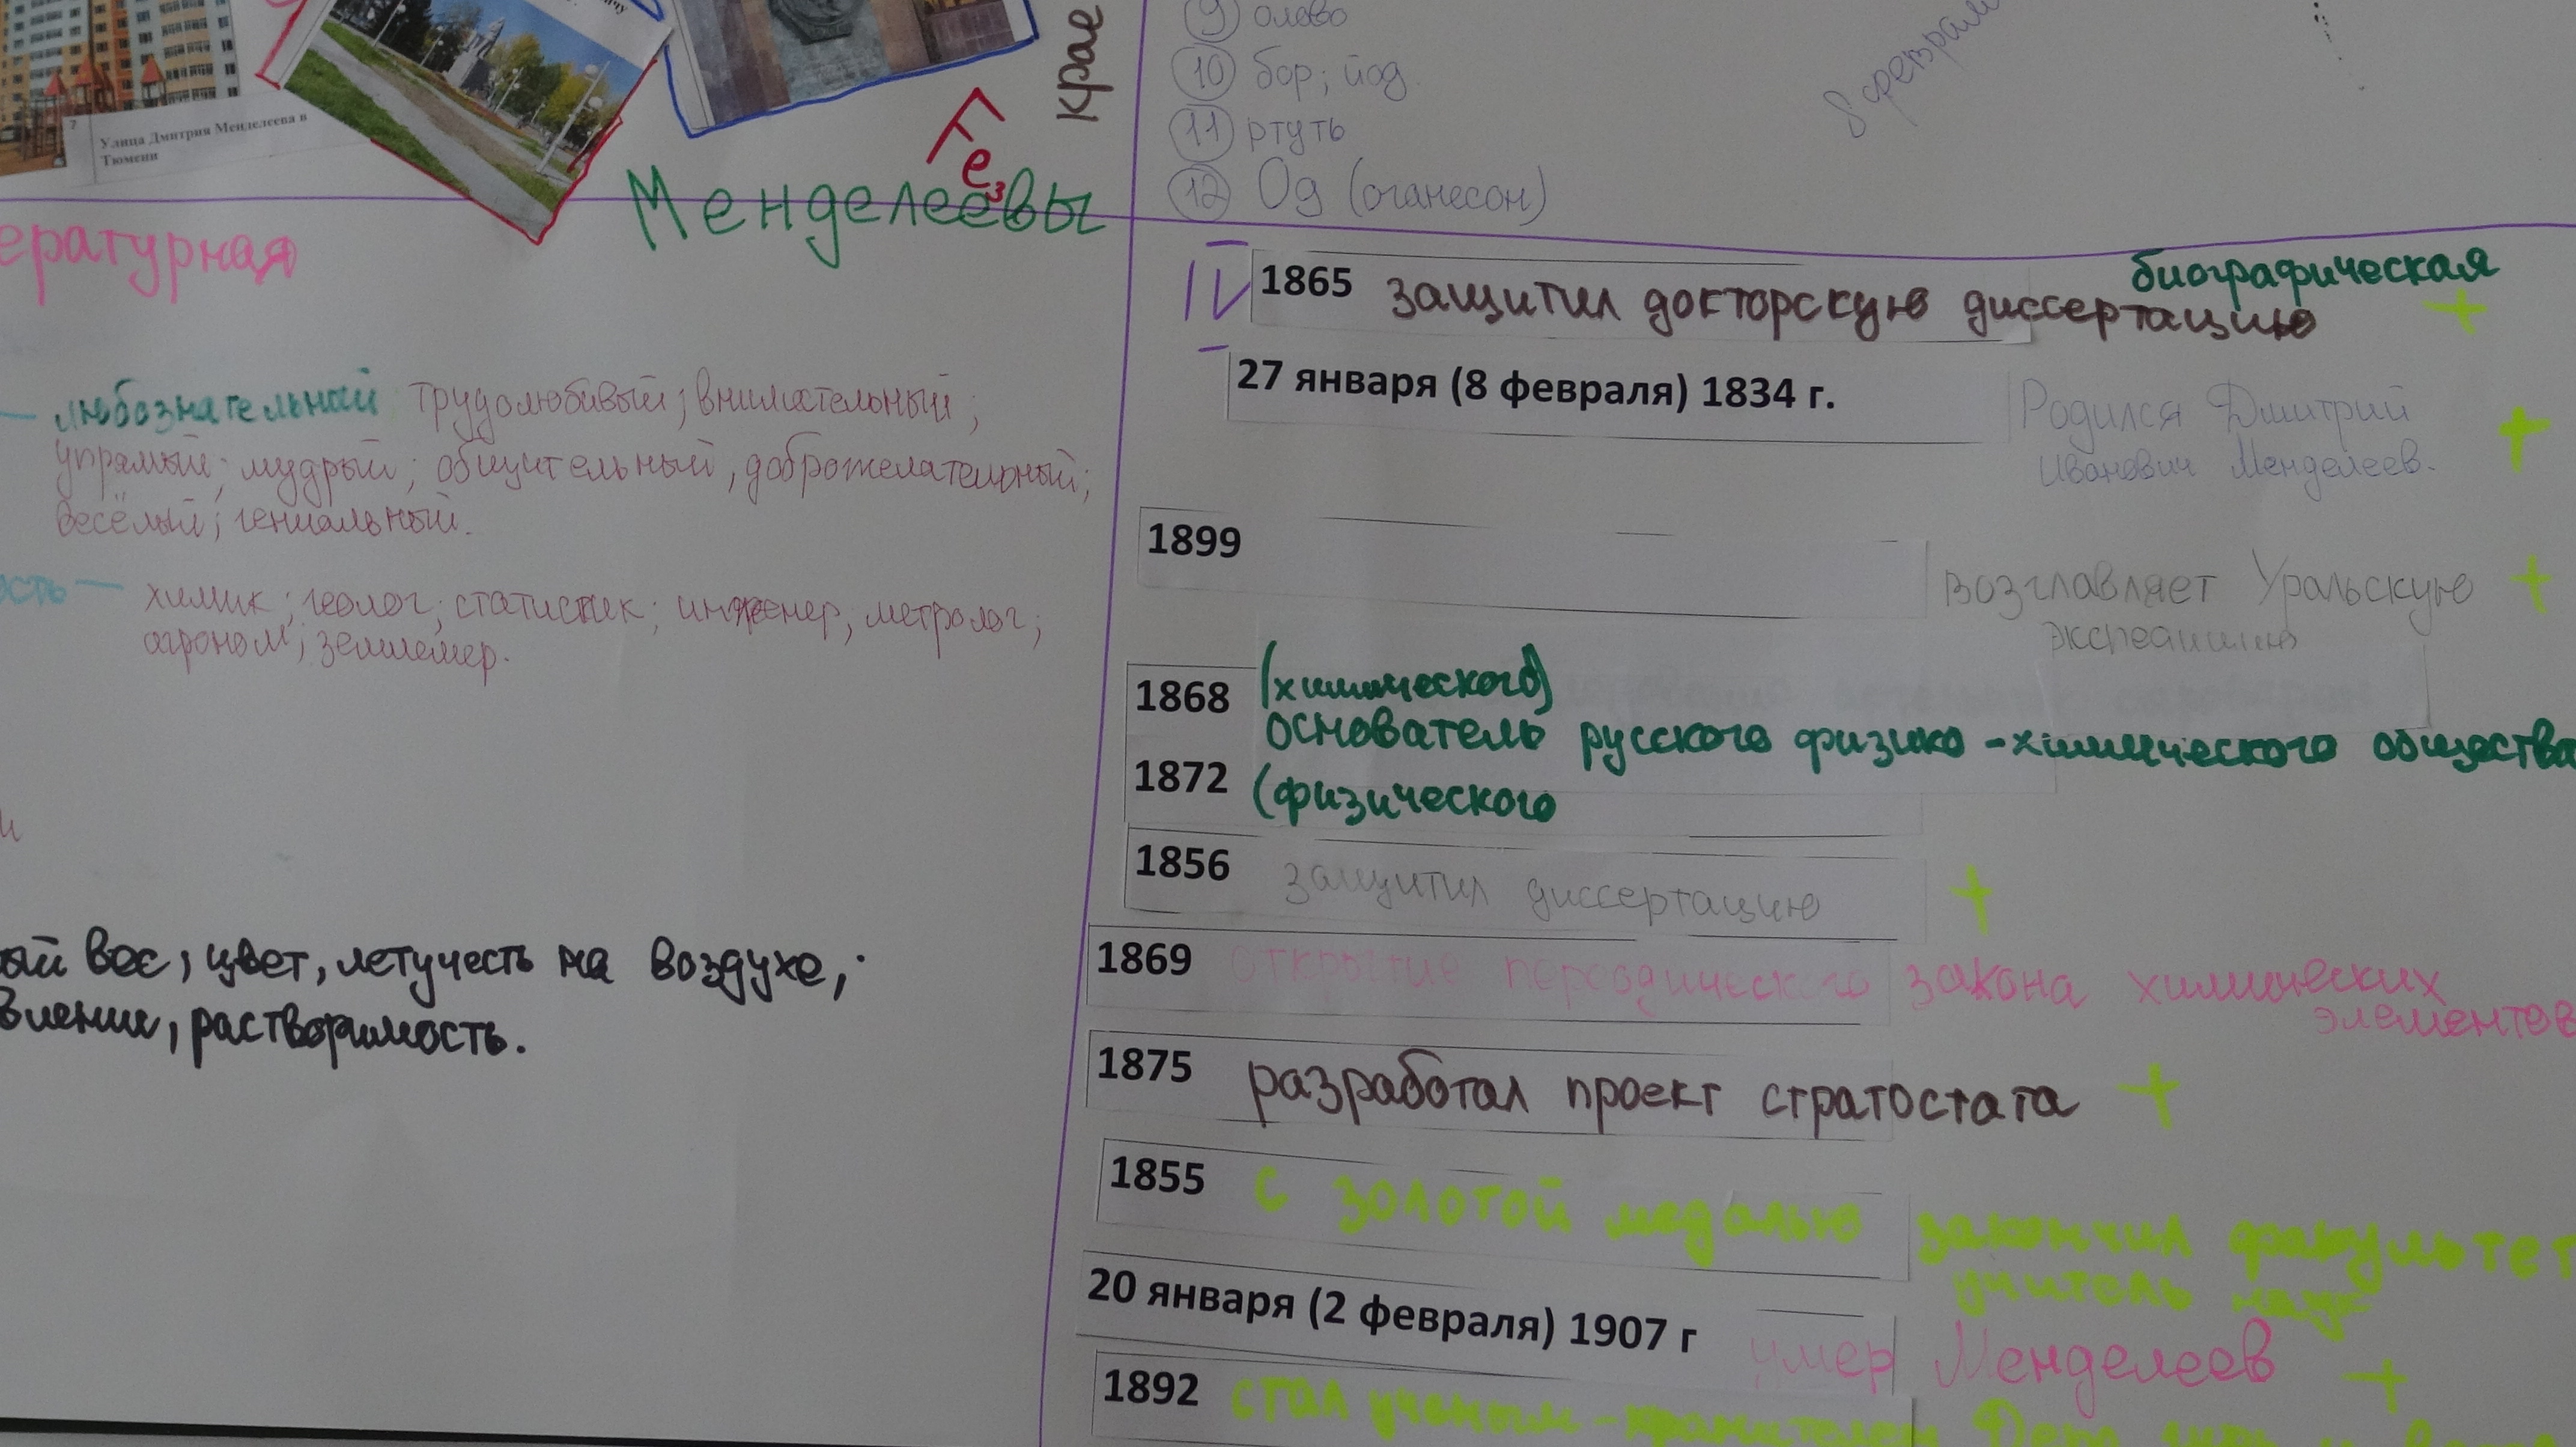 7
Улица Дмитрия Менделеева в
Тюмени
Fe₃
Крае
Менделеевы
9 олово
10 бор; йод.
11 ртуть
12 Од (оганесон)
8 февраля
ературная
— любознательный трудолюбивый; внимательный;
упрямый; мудрый; общительный, доброжелательный;
весёлый; гениальный.
ость — химик; геолог; статистик; инженер, метролог;
агроном; землемер.
ый вес; цвет, летучесть на воздухе,
вление, растворимость.
IV
биографическая
1865 защитил докторскую диссертацию +
27 января (8 февраля) 1834 г. Родился Дмитрий +
Иванович Менделеев.
1899 возглавляет Уральскую +
экспедицию
1868 (химического)
основатель русского физико-химического общества
1872 (физического
1856 защитил диссертацию +
1869 открытие периодического закона химических
элементов
1875 разработал проект стратостата +
1855 с золотой медалью закончил факультет
учитель наук
20 января (2 февраля) 1907 г умер Менделеев +
1892 стал ученым-хранителем Депо